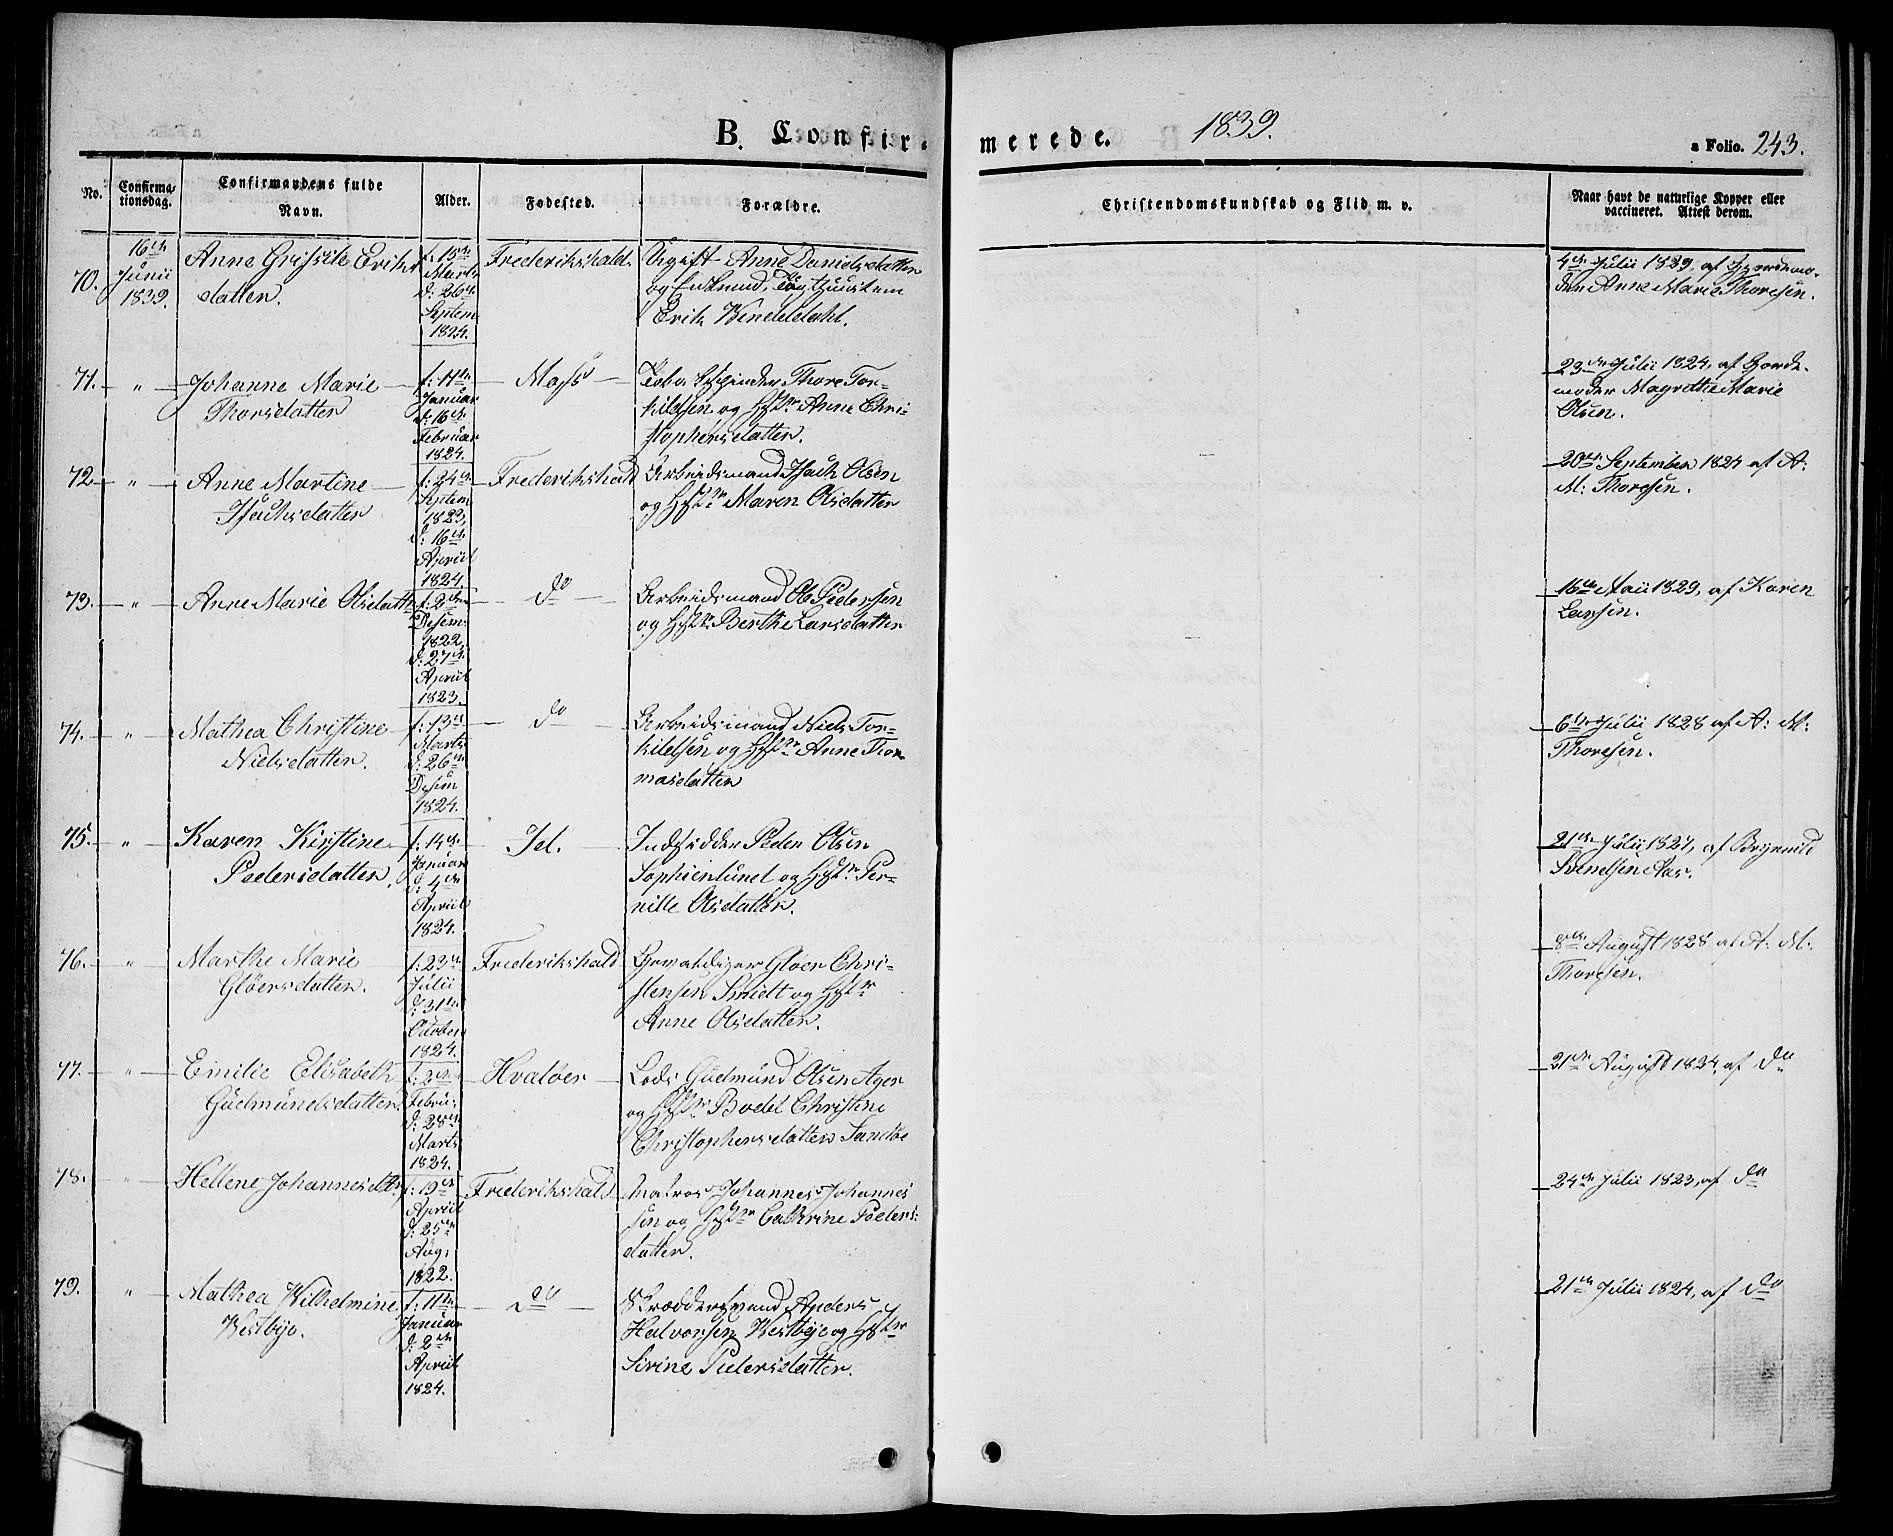 B. Confirmerede. 1839.
a Folio. 243.
No.
Confirma-
tionsdag.
Confirmandens fulde
Navn.
Alder.
Fødested.
Forældre.
Christendomskundskab og Flid m. v.
Naar havt de naturlige Kopper eller
vaccineret. Attest derom.
70.
16de
Junii
1839.
Anne Grissile Eriks
datter.
f: 15de
Marts
d: 26de
Septem
1824.
Frederikshald.
Ugift Anne Danielsdatter
og
Erik Wendeldahl.
4de Julii 1829, af Gjordemo-
der Anne Marie Thoresen.
71.
"
Johanne Marie
Thorsdatter
f: 11te
Januar
d: 16de
Februar
1824.
Moss
Thore Tor-
kildsen og Hstr Anne Chri-
stophersdatter.
23de Julii 1824, af Gorde-
moder Magrethe Marie
Olsen.
72
"
Anne Martine
Isachsdatter
f: 24de
Septem
1823,
d: 16de
April
1824.
Frederikshald
Arbeidsmand Isach Olsen
og Hstr Maren Olsdatter
20de September 1824 af A:
M: Thoresen.
73.
"
Anne Marie Olsdatter
f: 2den
Desem:
1822,
d: 27de
April
1823.
do
Arbeidsmand Ole Pedersen
og Hstr Berthe Larsdatter
16de Maii 1829, af Karen
Larsen.
74.
"
Mathea Christine
Nielsdatter.
f: 13de
Marts
d: 26de
Desem
1824.
do
Arbeidsmand Niels Tor-
kildsen og Hstr Anne Tho-
masdatter
6te Julii 1828 af A: M:
Thoresen.
75.
"
Karen Kirstine
Pedersdatter.
f: 14de
Januar
d: 4de
April
1824.
Id.
Indsidder Peder Olsen
Sophienlund og Hstr Per-
nille Olsdatter.
21de Julii 1827, af Brynild
Svendsen Aas.
76.
"
Marthe Marie
Gløersdatter.
f: 23de
Julii
d: 31te
October
1824.
Frederikshald
Gevaldiger Gløer Chri-
stensen Smidt og Hstr
Anne Olsdatter.
8de August 1828 af A: M:
Thoresen.
77.
"
Emilie Elisabeth
Gudmundsdatter.
f: 2den
Febru:
d: 28de
Marts
1824.
Hvaløer
Lods Gudmund Olsen Ager
og Hstr Bodel Christine
Christophersdatter Sandøe
21de August 1824, af do
78.
"
Hellene Johannesdtr
f: 19de
April
d: 25de
Aug:
1822.
Frederikshald
Matros Johannes Johannes
sen og Hstr Cathrine Peders-
datter.
24de Julii 1823, af do
79.
"
Mathea Wilhelmine
Westbye.
f: 11te
Januar
d: 2den
April
1824.
do
Skrædersvend Anders
Halvorsen Westbye og Hstr
Sirine Pedersdatter.
21de Julii 1824, af do